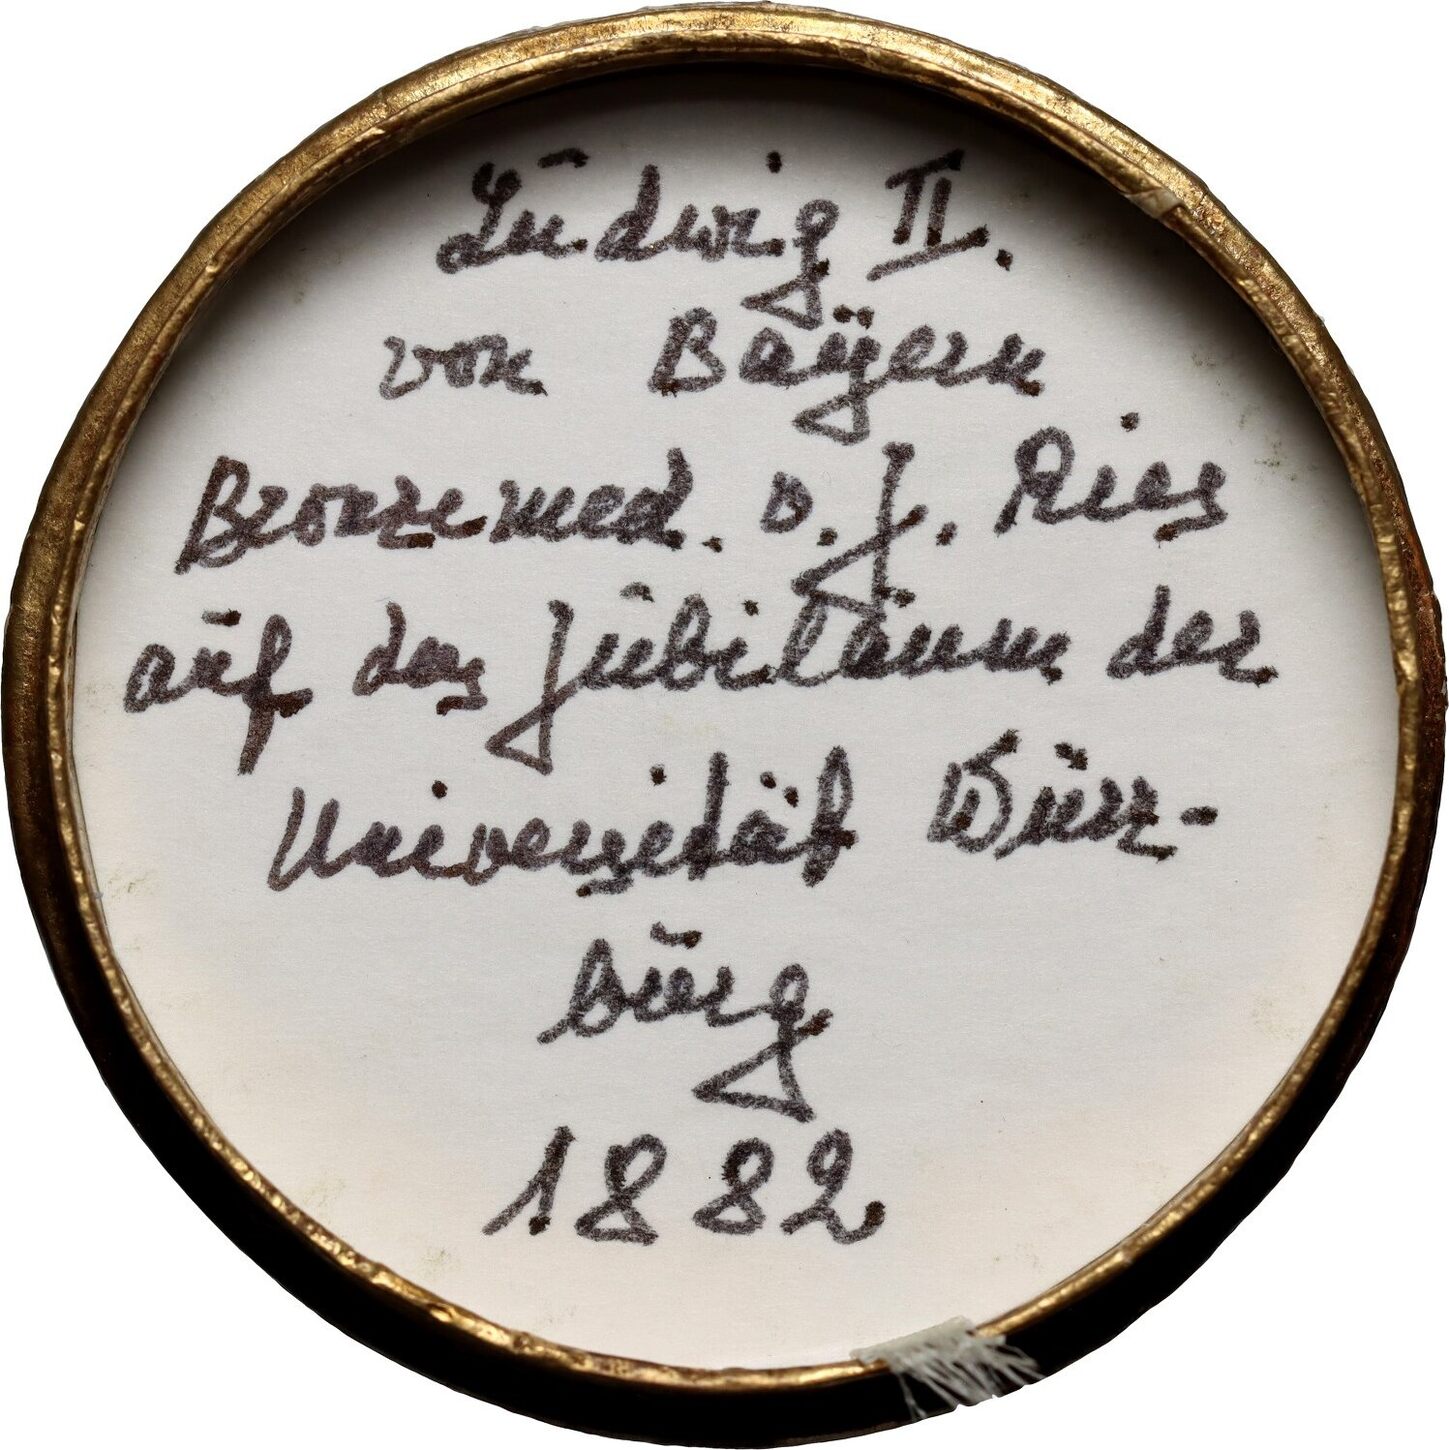 Ludwig II.
von Bayern
Bronzemed. v. J. Ries
auf das Jubiläum der
Universität Würz-
burg
1882